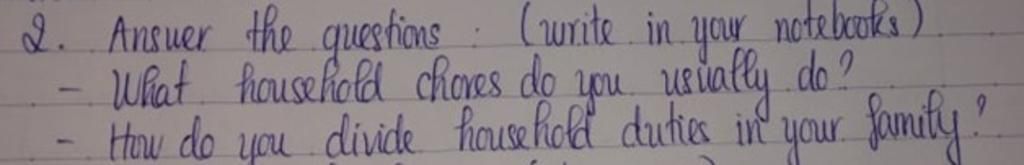 2. Answer the questions : (write in your notebooks)
- What household chores do you usually do?
- How do you divide household duties in your family?